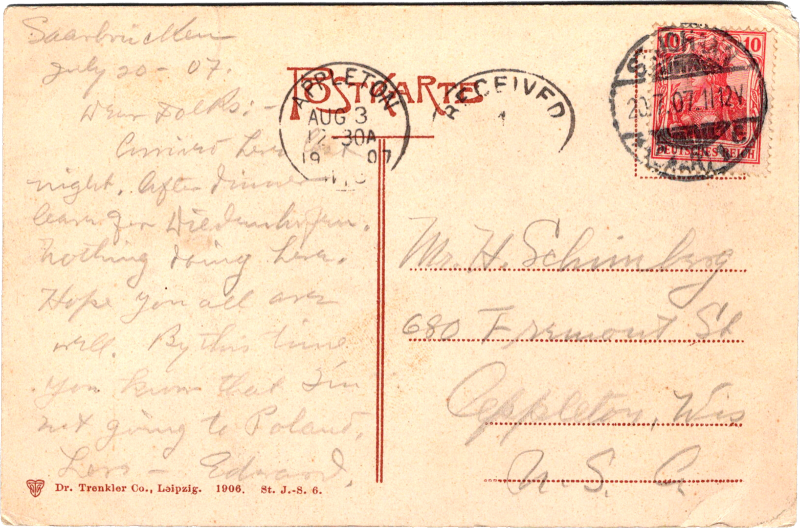 Saarbrücken
July 20 - 07.
Dear Folks: -
Arrived here
night. After dinner
leave for Diedenhofen.
Nothing doing here.
Hope you all are
well. By this time
you know that I'm
not going to Poland.
Love - Edward.
POSTKARTE
APPLETON
AUG 3
30A
19 07
WIS
RECEIVED
10
20.7.07.11-12V.
DEUTSCHES REICH
Mr. H. Schimberg
680 Fremont St
Appleton, Wis
U. S. A.
Dr. Trenkler Co., Leipzig. 1906. St. J.-S. 6.